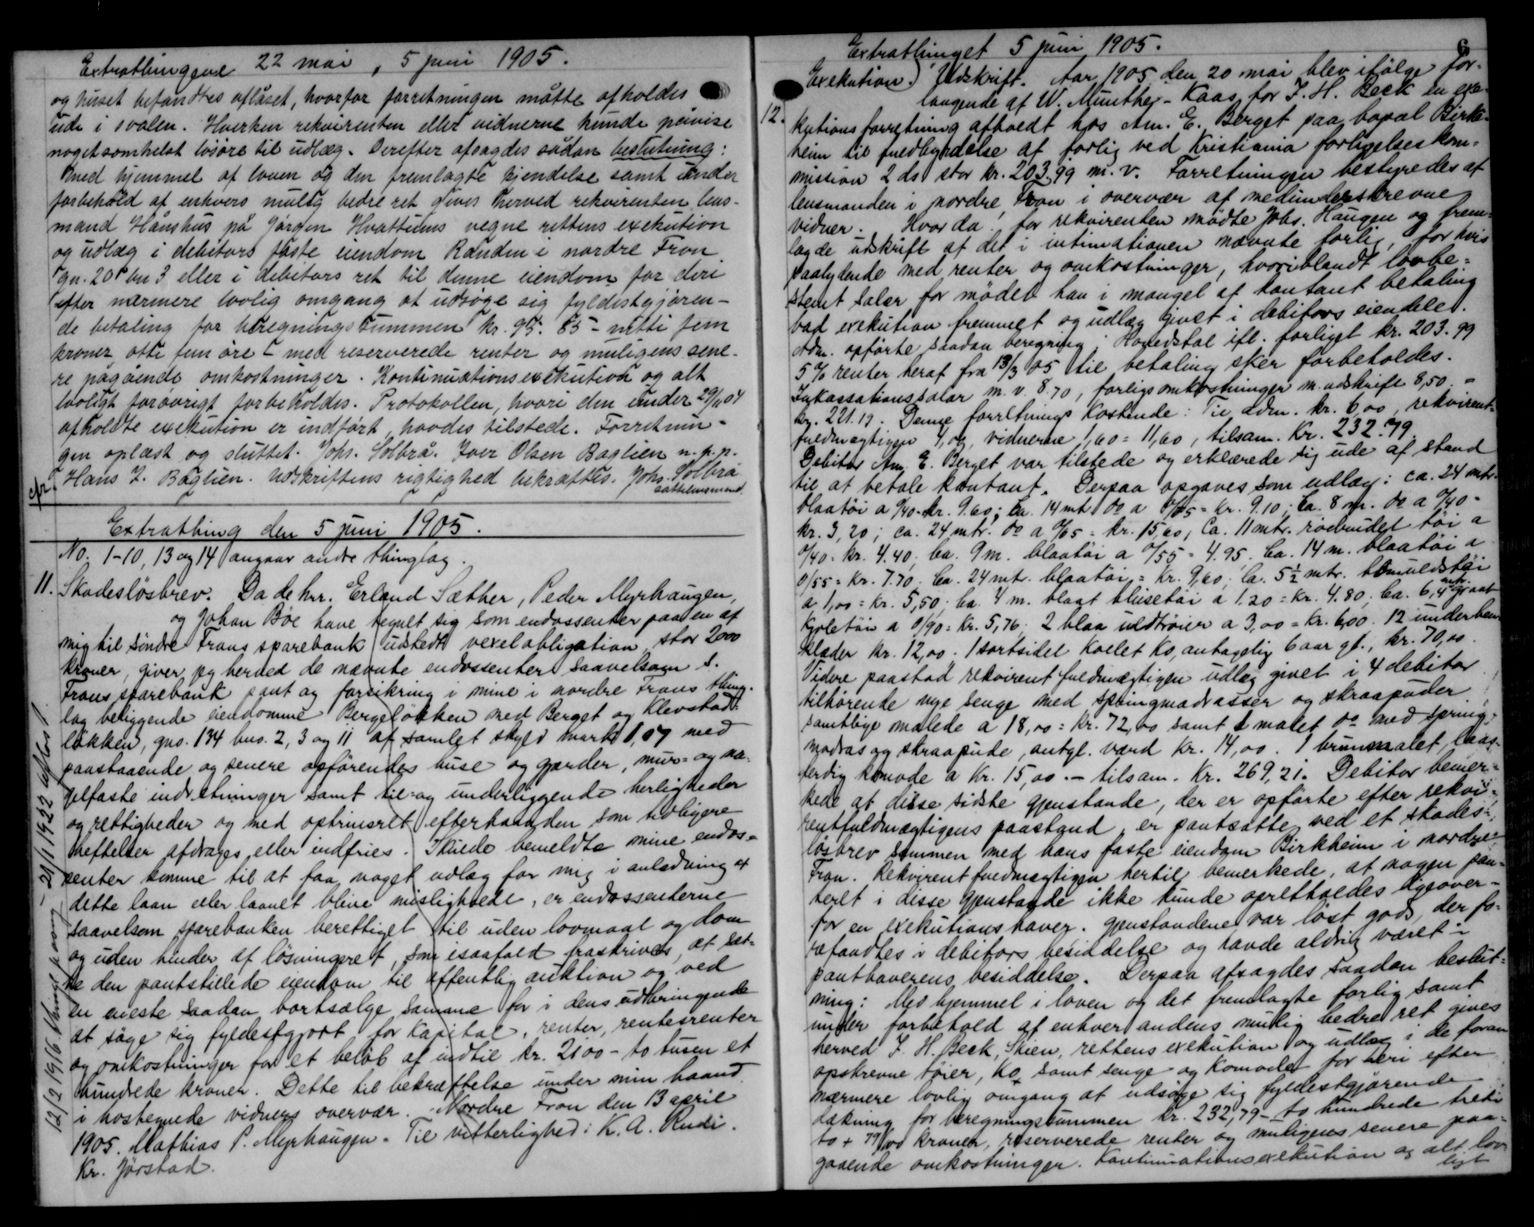 Extrathingene 22 mai, 5 juni 1905.
og huset befandtes aflåset, hvorfor forretningen måtte afholdes
ude i svalen. Hverken rekvirenten eller vidnerne kunde påvise
nogetsomhelst løsøre til udlæg. Derefter afsagdes sådan beslutning:
Med hjemmel af loven og den fremlagte kjendelse samt under
forbehold af enhvers mulig bedre ret gives herved rekvirenten lens-
mand Håmshus på Jørgen Hvattums vegne rettens exekution
og udlæg i debitors faste eiendom Randen i nordre Fron
gn. 201 bn 3 eller i debitors ret til denne eiendom for deri
efter nærmere lovlig omgang at udsøge sig fyldestgjøren-
de betaling for beregningssummen kr. 95.85 - nitti fem
kroner otti fem øre - med reserverede renter og muligens sene-
re pågående omkostninger. Kontinuationsexekution og alt
lovligt forøvrigt forbeholdes. Protokollen, hvori den under 29/11 04
afholdte exekution er indført, havdes tilstede. Forretnin-
gen oplæst og sluttet. Johs. Solbrå. Iver Olsen Baglien m. p. p.
Hans I. Baglien. Udskriftens rigtighed bekræftes. Johs. Solbrå
cfr.
Extrathing den 5 juni 1905.
No. 1-10, 13 og 14 angaar andre thinglag.
11. Skadesløsbrev. Da de hrr. Erland Sæther, Peder Myrhaugen,
og Johan Bøe have tegnet sig som endossenter paa en af
mig til søndre Frons sparebank udstedt vexelobligation stor 2000
kroner, giver jeg herved de nævnte endossenter saavelsom s.
Frons sparebank pant og forsikring i mine i nordre Frons thing-
lag beliggende eiendomme Bergeløkken med Berget og Klevstad-
løkken, gno. 134 bno. 2, 3 og 11 af samlet skyld mark 1,07 med
paastaaende og senere opførendes huse og gjærder, mur- og na-
gelfaste indretninger samt til- og underliggende herligheder
og rettigheder og med optrinsret efterhaanden som tidligere
heftelser afdrages eller indfries. Skulde bemeldte mine endos-
senter komme til at faa noget udlæg for mig i anledning af
dette laan eller laanet blive misligholdt, er endossenterne
saavelsom sparebanken berettiget til uden lovmaal og dom
og uden hinder af løsningsret, som isaafald fraskrives, at sæt-
te den pantstillede eiendom til offentlig auktion og ved
en eneste saadan bortsælge samme for i dens udbringende
at søge sig fyldestgjort for kapital, renter, rentesrenter
og omkostninger for et beløb af indtil kr. 2100 - to tusen et
hundrede kroner. Dette til bekræftelse under min haand
i hostegnede vidners overvær. Nordre Fron den 13 april
1905. Mathias P. Myrhaugen. Til vitterlighed: K. A. Rudi.
Kr. Jørstad.
Extrathinget 5 juni 1905.
6
12. Exekution) Udskrift. Aar 1905 den 20 mai blev ifølge for-
langende af W. Munthe-Kaas for J. H. Beck en exe-
kutionsforretning afholdt hos Am. E. Berget paa bopæl Birk-
heim til fuldbyrdelse af forlig ved Kristiania forligelseskom-
mission 2 ds stor kr. 203.99 m. v. Forretningen bestyredes af
lensmanden i nordre Fron i overvær af medunderskrevne
vidner. Hvor da: for rekvirenten mødte Johs. Haugen og frem-
lagde udskrift af det i intimationen nævnte forlig, for hvis
paalydende med renter og omkostninger, hvoriblandt lovbe-
stemt salær for mødet han i mangel af kontant betaling
bad exekution fremmet og udlæg givet i debitors eiendele.
Adm. opførte saadan beregning: Hovedstol ifl. forliget kr. 203.99
5 % renter heraf fra 13/3 05 til betaling sker forbeholdes.
Inkassationssalær m. v. 8,70, forligsomkostninger m. udskrift 8,50 =
kr. 221.19. Denne forretnings kostende: Til adm. kr. 6,00, rekvirent-
fuldmægtigen 4,00, vidnerne 1,60 = 11,60, tilsam. kr. 232.79.
Debitor Am. E. Berget var tilstede og erklærede sig ude af stand
til at betale kontant. Derpaa opgaves som udlæg: ca. 24 mtr.
blaatøi a 0/40 - kr. 9.60; ca. 14 mt. do a 0/65 = kr. 9.10; ca. 8 m. do a 0/40 =
kr. 3,20; ca. 24 mtr. do a 0/65 = kr. 15,60, ca. 11 mtr. rødrudet tøi a
0/40 - kr. 4.40, ca. 9 m. blaatøi a 0/55 = 4.95, ca. 14 m. blaatøi a
0/55 = kr. 7.70. ca. 24 mtr. blaatøi = kr. 9,60, ca. 5 1/2 mtr. bomuldstøi
a 1,00 = kr. 5,50; ca. 4 m. blaat blusetøi a 1.20 = kr. 4.80, ca. 6,4 mtr. graat
kjoletøi a 0/90 = kr. 5,76; 2 blaa uldtrøier a 3,00 = kr. 6,00. 12 underben-
klæder kr. 12,00. 1 sortsidet kollet ko, antagelig 6 aar gl., kr. 70,00.
Videre paastod rekvirentfuldmægtigen udlæg givet i 4 debitor
tilhørende nye senge med springmadrasser og skraapuder
samtlige malede a 18,00 = kr. 72,00 samt 1 malet do med spring-
madras og skraapude, antgl. værd kr. 14,00. 1 brunmalet, laas-
ferdig komode a kr. 15,00. - tilsam. kr. 269,21. Debitor bemer-
kede at disse sidste gjenstande, der er opførte efter rekvi-
rentfuldmægtigens paastand, er pantsatte ved et skades-
løsbrev sammen med hans faste eiendom Birkheim i nordre
Fron. Rekvirentfuldmægtigen hertil bemerkede, at nogen pan-
teret i disse gjenstande ikke kunde opretholdes ligeover-
for en exekutionshaver. Gjenstandene var løst gods, der fo-
refandtes i debitors besiddelse og havde aldrig været i
panthaverens besiddelse. Derpaa afsagdes saadan beslut-
ning: Med hjemmel i loven og det fremlagte forlig samt
under forbehold af enhver andens mulig bedre ret gives
herved J. H. Beck, Skien, rettens exekution og udlæg i de foran
opskrevne tøier, ko samt senge og komode for heri efter
nærmere lovlig omgang at udsøge sig fyldestgjørende
dækning for beregningssummen kr. 232,79 - to hundrede tredi
to + 79/00 kroner, reserverede renter og muligens senere paa-
gaaende omkostninger. Kontinuationsexekution og alt lov-
ligt